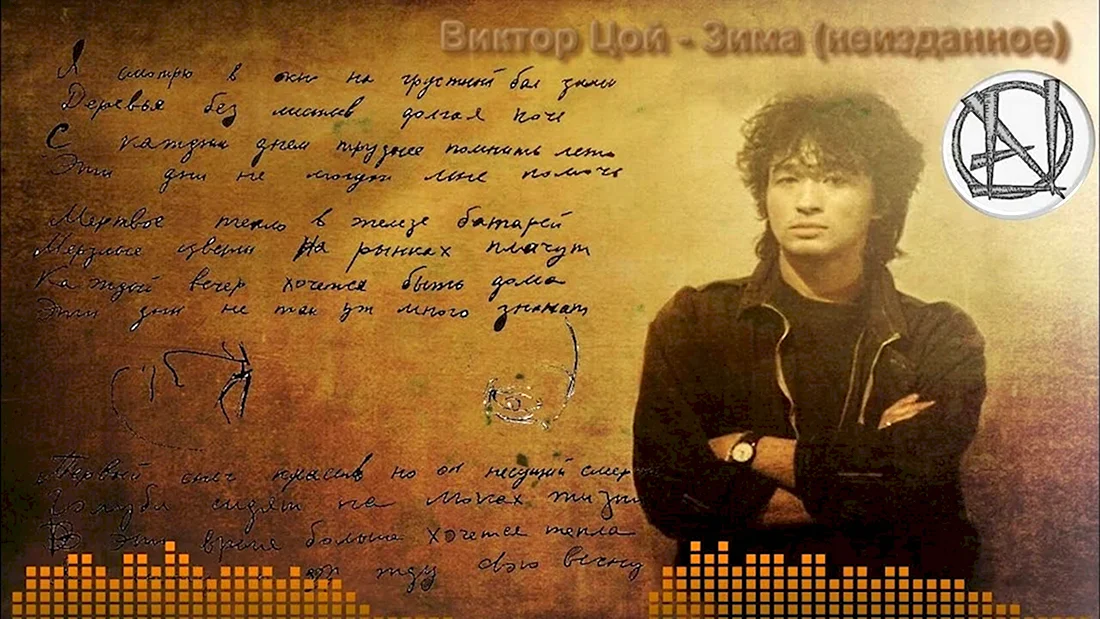 Виктор Цой - Зима (неизданное)
Я смотрю в окно на грустный бал зимы
Деревья без листьев долгая ночь
С каждым днем труднее помнить лето
Эти дни не могут мне помочь
Мертвое тепло в железе батарей
Мерзлые цветы На рынках плачут
Каждый вечер хочется быть дома
Эти дни не так уж много значат
Первый снег красив но он несущий смерть
Голуби сидят на
В это время больше хочется тепла
жду свою весну